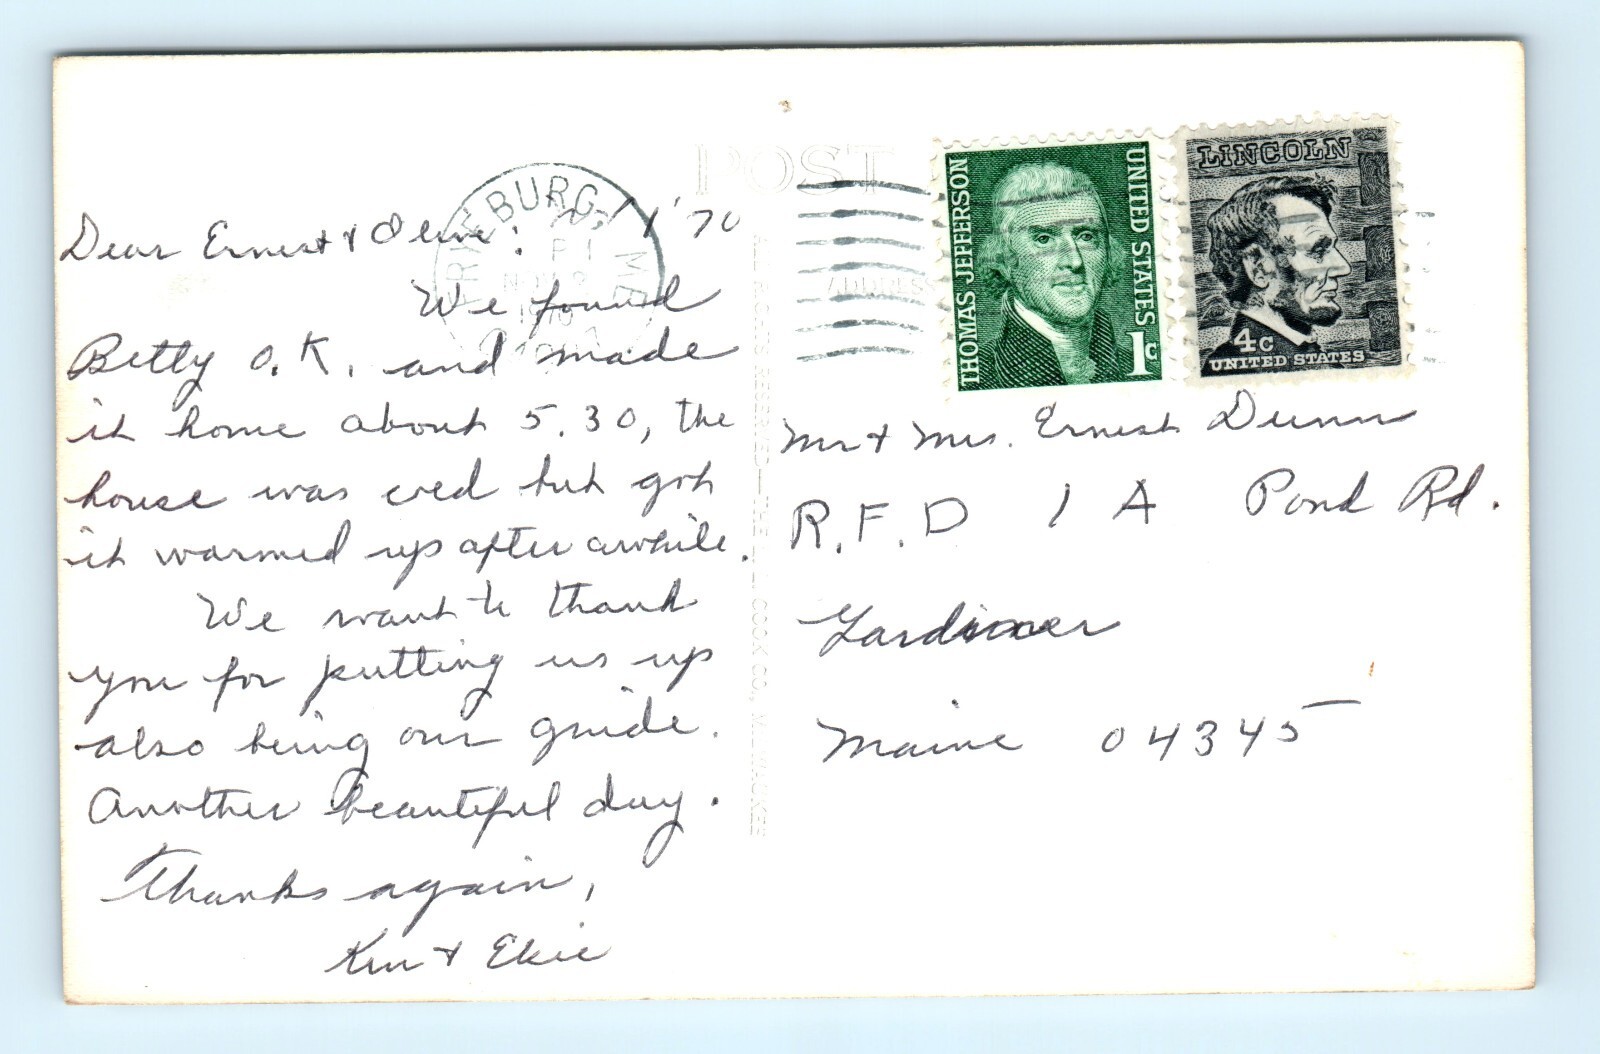 POST
ADDRESS
FRYEBURG, ME
1970
THOMAS JEFFERSON
UNITED STATES
1c
LINCOLN
4c
UNITED STATES
1 '70
Dear Ernest & Olive:
We found
Betty O.K. and made
it home about 5.30, the
house was coed but got
it warmed up after awhile.
We want to thank
you for putting us up
also being our guide.
Another beautiful day.
Thanks again,
Ken & Elsie
ALL RIGHTS RESERVED—THE COOK CO., MILWAUKEE
Mr & Mrs. Ernest Dunn
R.F.D 1 A Pond Rd.
Gardiner
Maine 04345